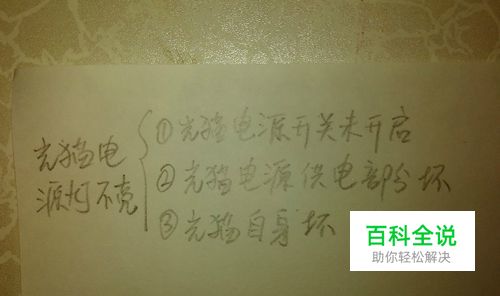 ①光猫电源开关未开启
光猫电
源灯不亮
②光猫电源供电部分坏
③光猫自身坏
百科全说
助你轻松解决